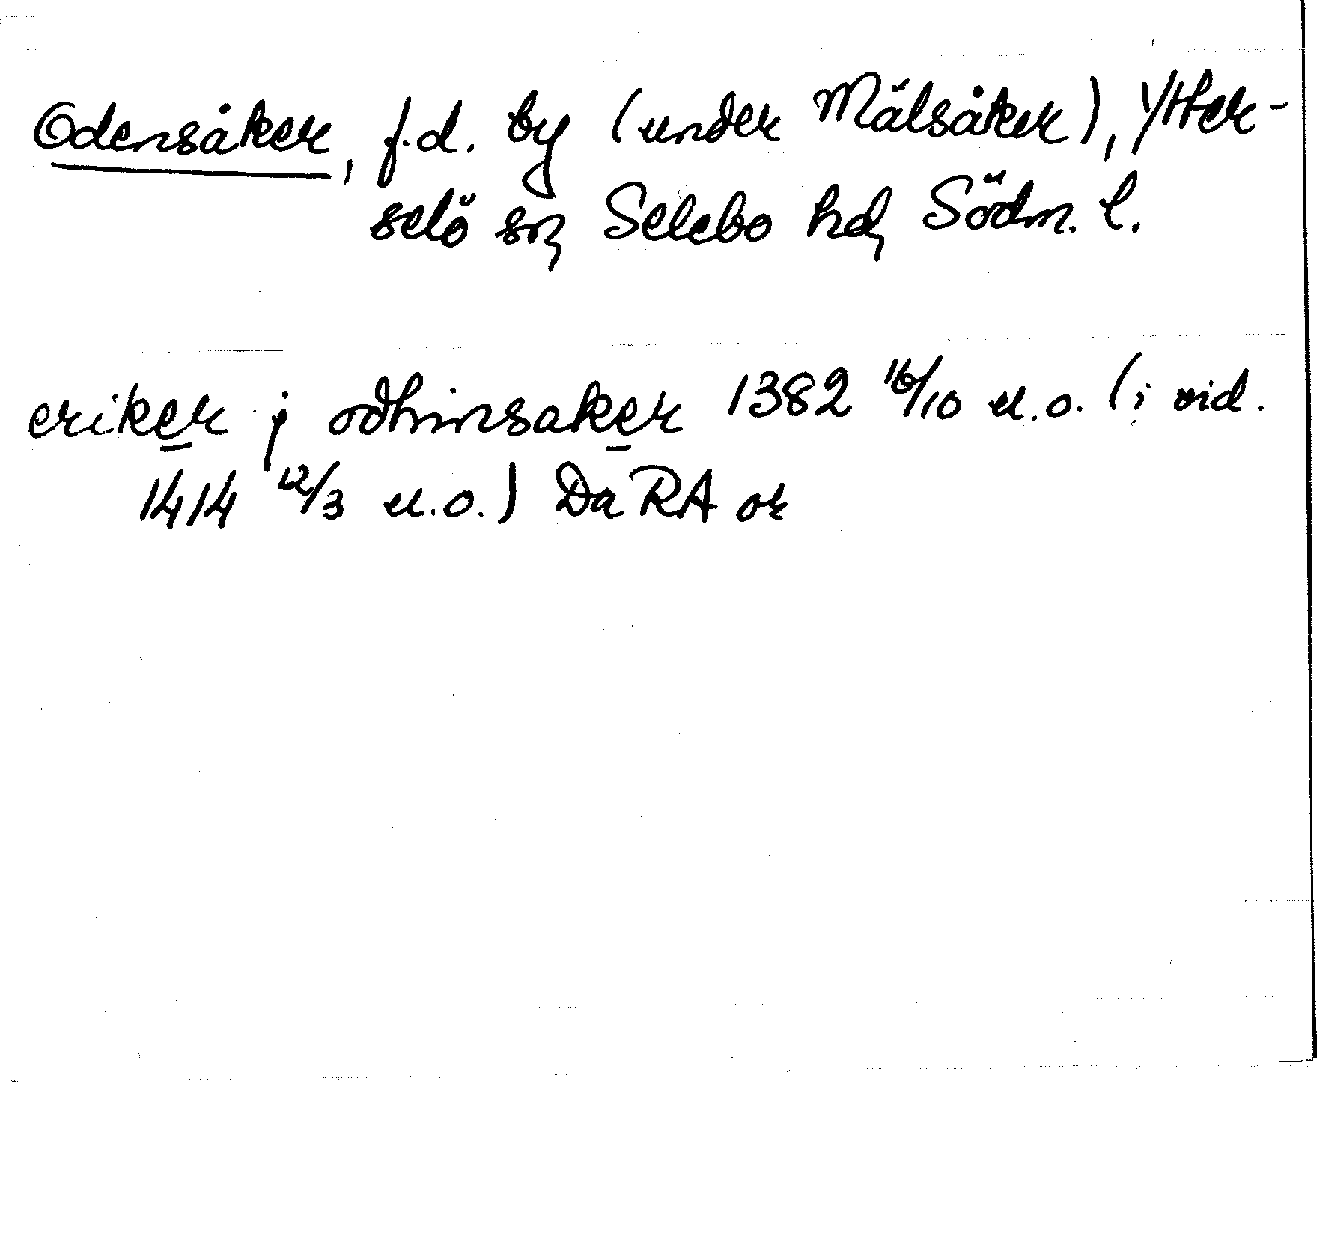 Odensåker, f.d. by (under Mälsåker), Ytter-
selö sn, Selebo hd, Södm. l.
eriker j odhinsaker 1382 16/10 u.o. (i vid.
1414 12/3 u.o.) Da RA or